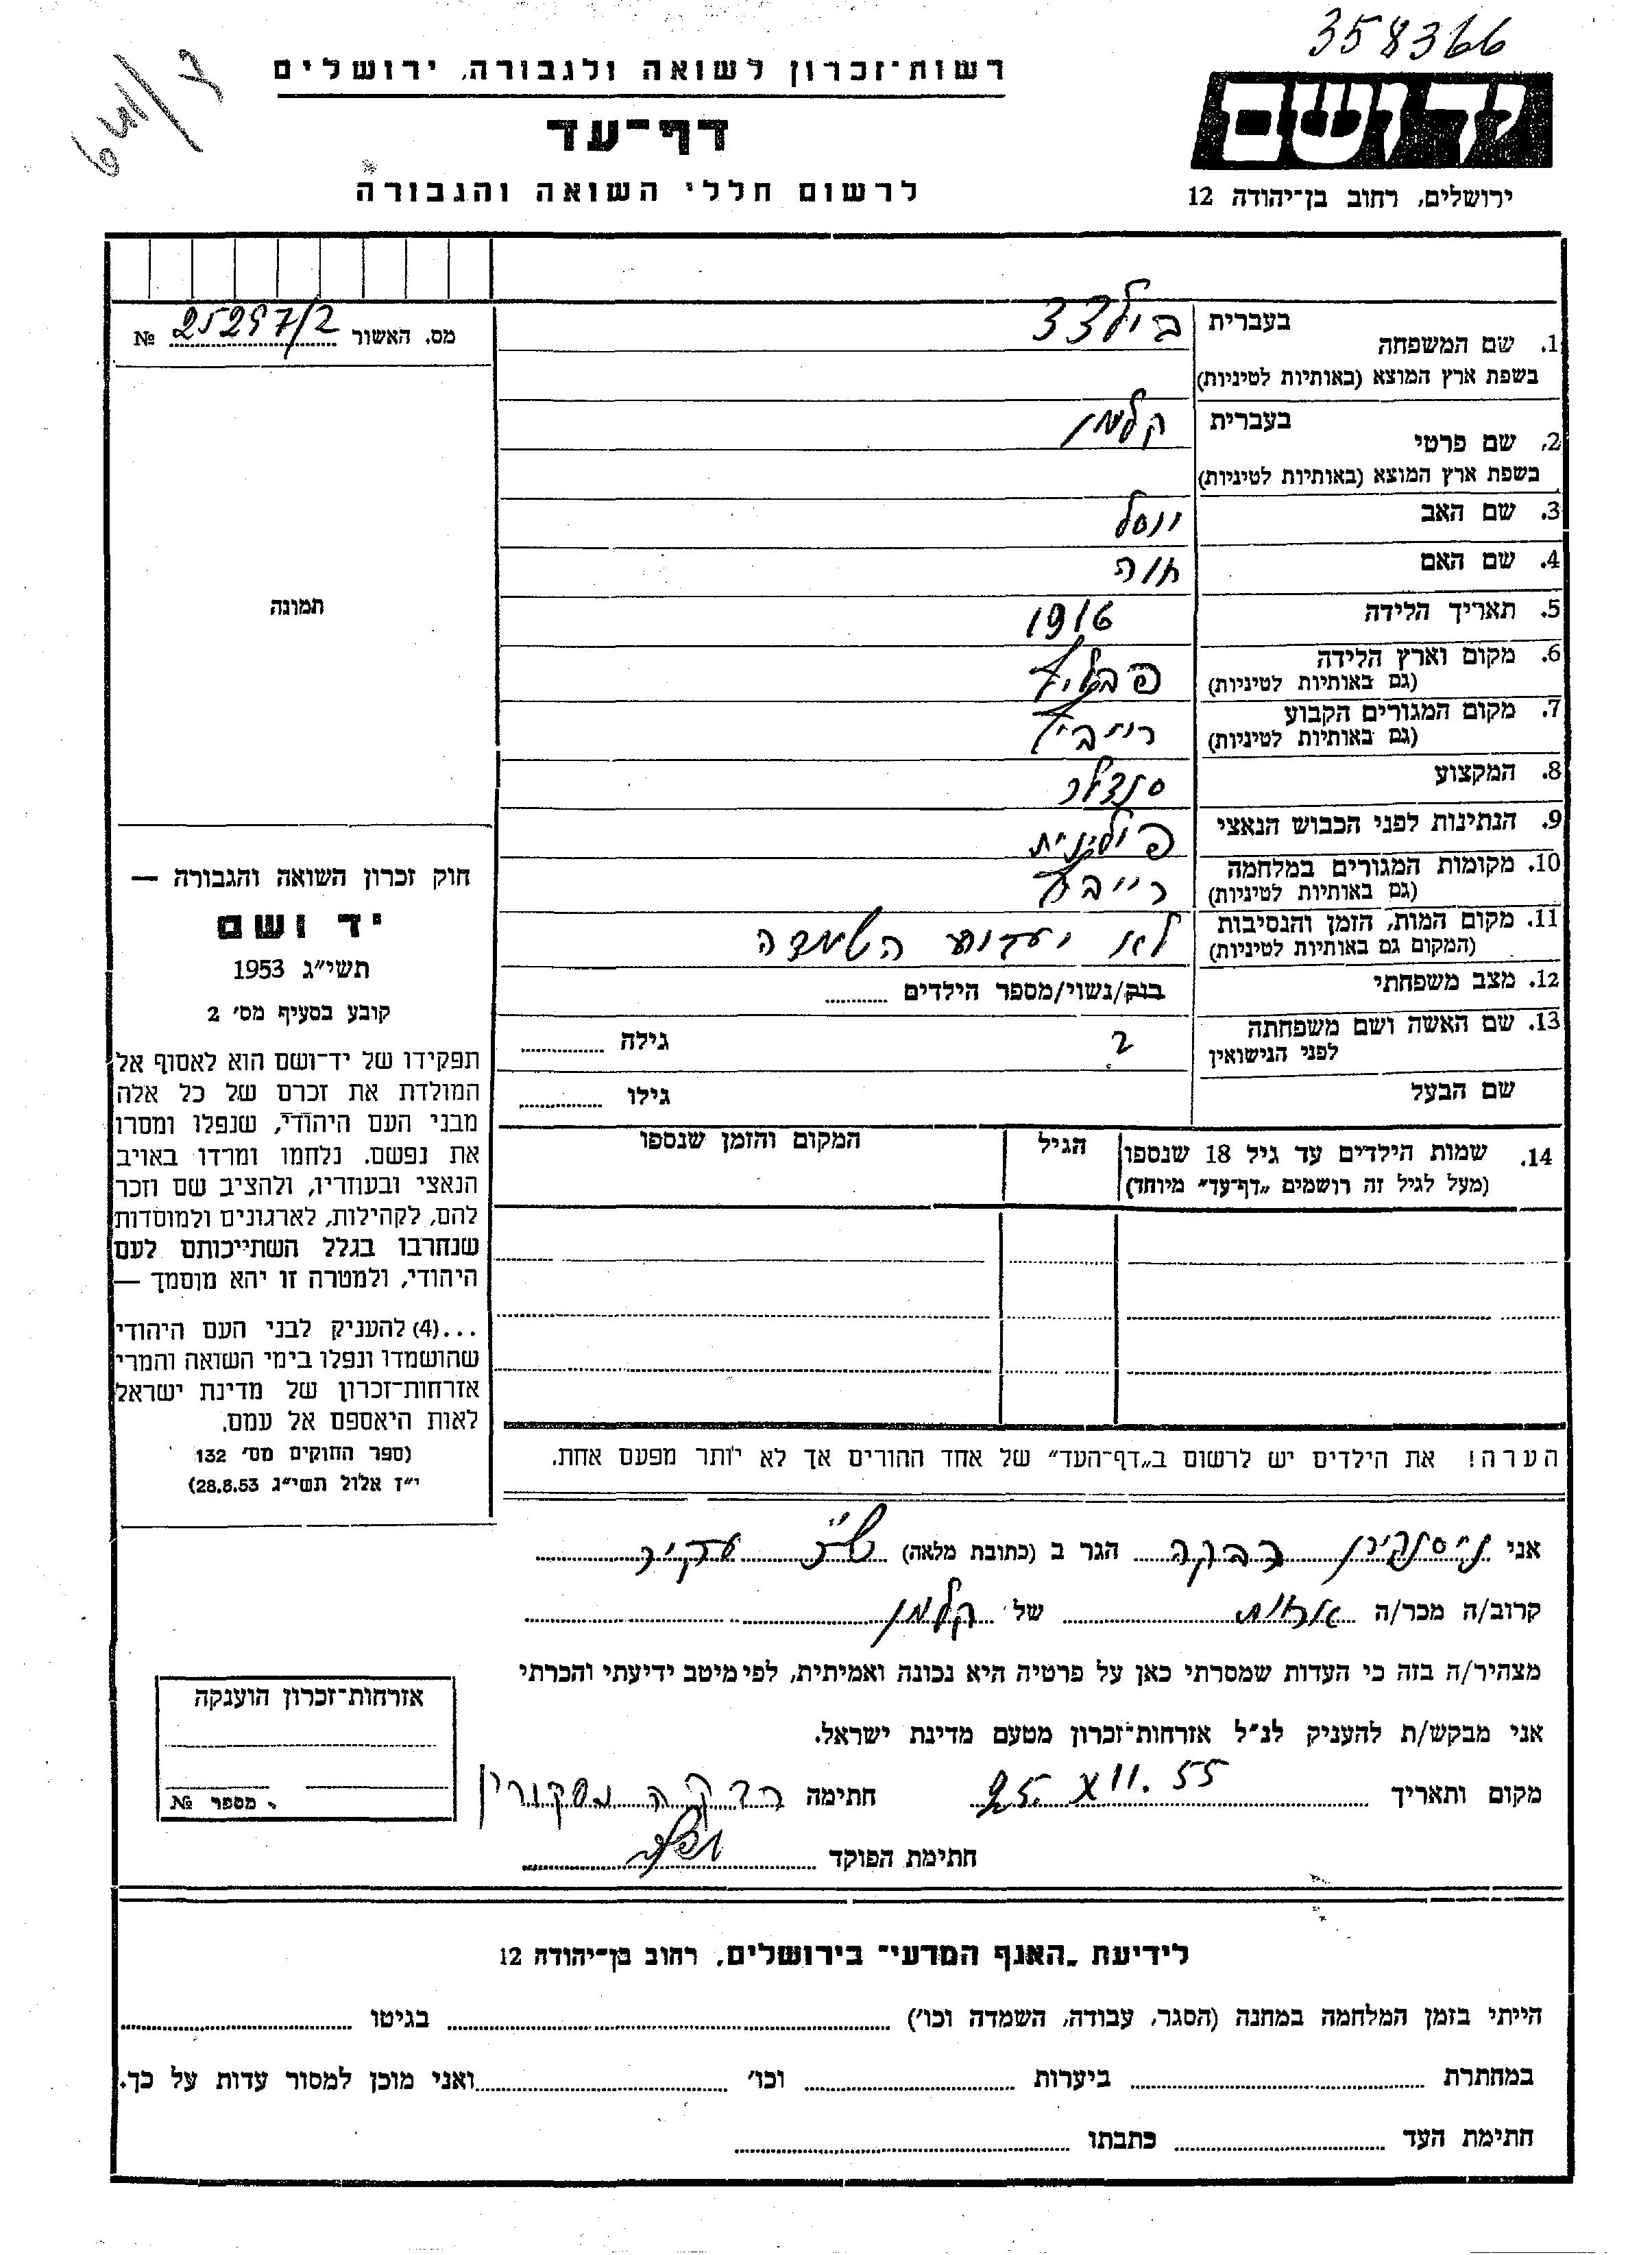 358366
רשות־זכרון לשואה ולגבורה, ירושלים
דף־עד
לרשום חללי השואה והגבורה
יד ושם
ירושלים, רחוב בן־יהודה 12
מס. האשור 25297/2 №
1. שם המשפחה בעברית
בשפת ארץ המוצא (באותיות לטיניות)
2. שם פרטי בעברית קלמן
בשפת ארץ המוצא (באותיות לטיניות)
3. שם האב יוסל
4. שם האם חוה
5. תאריך הלידה 1916
6. מקום וארץ הלידה
(גם באותיות לטיניות)
7. מקום המגורים הקבוע
(גם באותיות לטיניות)
8. המקצוע סנדלר
9. הנתינות לפני הכבוש הנאצי פולנית
10. מקומות המגורים במלחמה
(גם באותיות לטיניות)
11. מקום המות, הזמן והנסיבות לא ידוע השמדה
(המקום גם באותיות לטיניות)
12. מצב משפחתי רווק/נשוי/מספר הילדים
13. שם האשה ושם משפחתה
לפני הנישואין גילה
שם הבעל גילו
14. שמות הילדים עד גיל 18 שנספו הגיל המקום והזמן שנספו
(מעל לגיל זה רושמים „דף־עד״ מיוחד)
תמונה
חוק זכרון השואה והגבורה —
יד ושם
תשי״ג 1953
קובע בסעיף מס׳ 2
תפקידו של יד־ושם הוא לאסוף אל
המולדת את זכרם של כל אלה
מבני העם היהודי, שנפלו ומסרו
את נפשם, נלחמו ומרדו באויב
הנאצי ובעוזריו, ולהציב שם וזכר
להם, לקהילות, לארגונים ולמוסדות
שנחרבו בגלל השתייכותם לעם
היהודי, ולמטרה זו יהא מוסמך —
...(4) להעניק לבני העם היהודי
שהושמדו ונפלו בימי השואה והמרי
אזרחות־זכרון של מדינת ישראל
לאות היאספם אל עמם.
(ספר החוקים מס׳ 132
י״ז אלול תשי״ג 28.8.53)
הערה! את הילדים יש לרשום ב„דף־העד״ של אחד ההורים אך לא יותר מפעם אחת.
אני רבקה הגר ב (כתובת מלאה) עקיר
קרוב/ה מכר/ה אחות של קלמן
מצהיר/ה בזה כי העדות שמסרתי כאן על פרטיה היא נכונה ואמיתית, לפי מיטב ידיעתי והכרתי
אני מבקש/ת להעניק לנ״ל אזרחות־זכרון מטעם מדינת ישראל.
מקום ותאריך 25. XII. 55 חתימה
חתימת הפוקד
אזרחות־זכרון הוענקה
מספר №
לידיעת „האגף המדעי״ בירושלים, רחוב בן־יהודה 12
הייתי בזמן המלחמה במחנה (הסגר, עבודה, השמדה וכו׳) בגיטו
במחתרת ביערות וכו׳ ואני מוכן למסור עדות על כך.
חתימת העד כתבתו